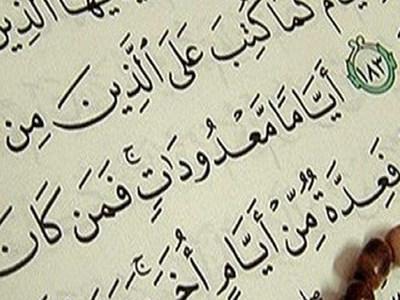 كَمَا كُتِبَ عَلَى ٱلَّذِينَ مِن
١٨٣ أَيَّامًا مَّعْدُودَاتٍ ۚ فَمَن كَانَ
فَعِدَّةٌ مِّنْ أَيَّامٍ أُخَرَ ۚ